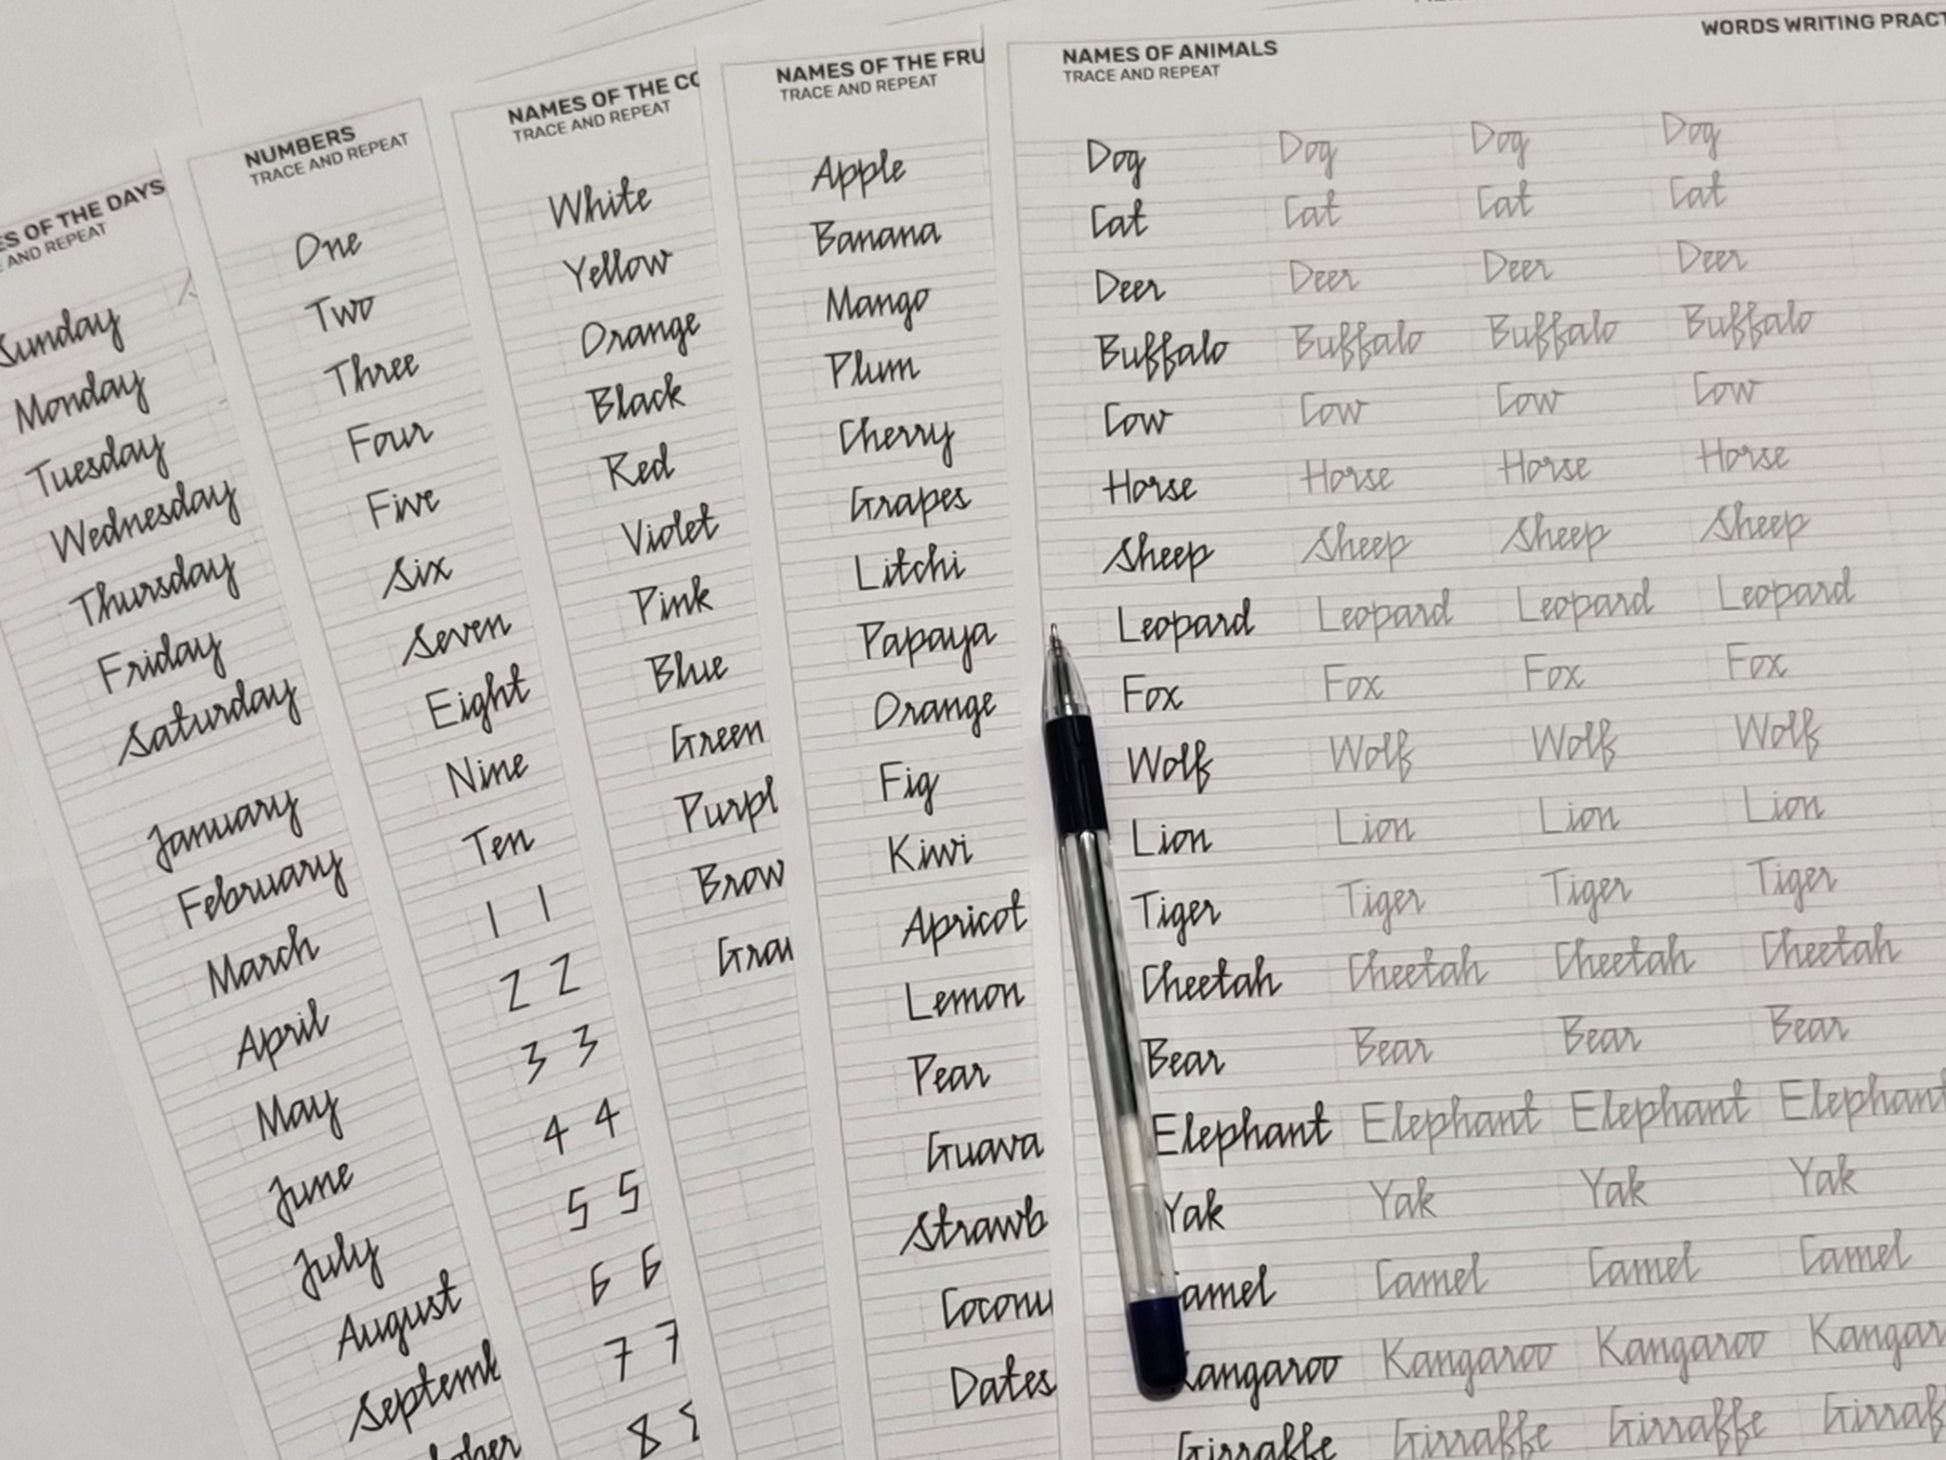 OF THE DAYS
AND REPEAT
Sunday
Monday
Tuesday
Wednesday
Thursday
Friday
Saturday
January
February
March
April
May
June
July
August
Septemb
ober
NUMBERS
TRACE AND REPEAT
One
Two
Three
Four
Five
Six
Seven
Eight
Nine
Ten
1 1
2 2
3 3
4 4
5 5
6 6
7 7
8
NAMES OF THE CO
TRACE AND REPEAT
White
Yellow
Orange
Black
Red
Violet
Pink
Blue
Green
Purpl
Brow
Gra
NAMES OF THE FRU
TRACE AND REPEAT
Apple
Banana
Mango
Plum
Cherry
Grapes
Litchi
Papaya
Orange
Fig
Kiwi
Apricot
Lemon
Pear
Guava
Strawb
Coconu
Dates
WORDS WRITING PRACT
NAMES OF ANIMALS
TRACE AND REPEAT
Dog Dog Dog Dog
Cat Cat Cat Cat
Deer Deer Deer Deer
Buffalo Buffalo Buffalo Buffalo
Cow Cow Cow Cow
Horse Horse Horse Horse
Sheep Sheep Sheep Sheep
Leopard Leopard Leopard Leopard
Fox Fox Fox Fox
Wolf Wolf Wolf Wolf
Lion Lion Lion Lion
Tiger Tiger Tiger Tiger
Cheetah Cheetah Cheetah Cheetah
Bear Bear Bear Bear
Elephant Elephant Elephant Elephant
Yak Yak Yak Yak
amel Camel Camel Camel
Kangaroo Kangaroo Kangaroo Kangar
Girraffe Girraffe Girraffe Girraf